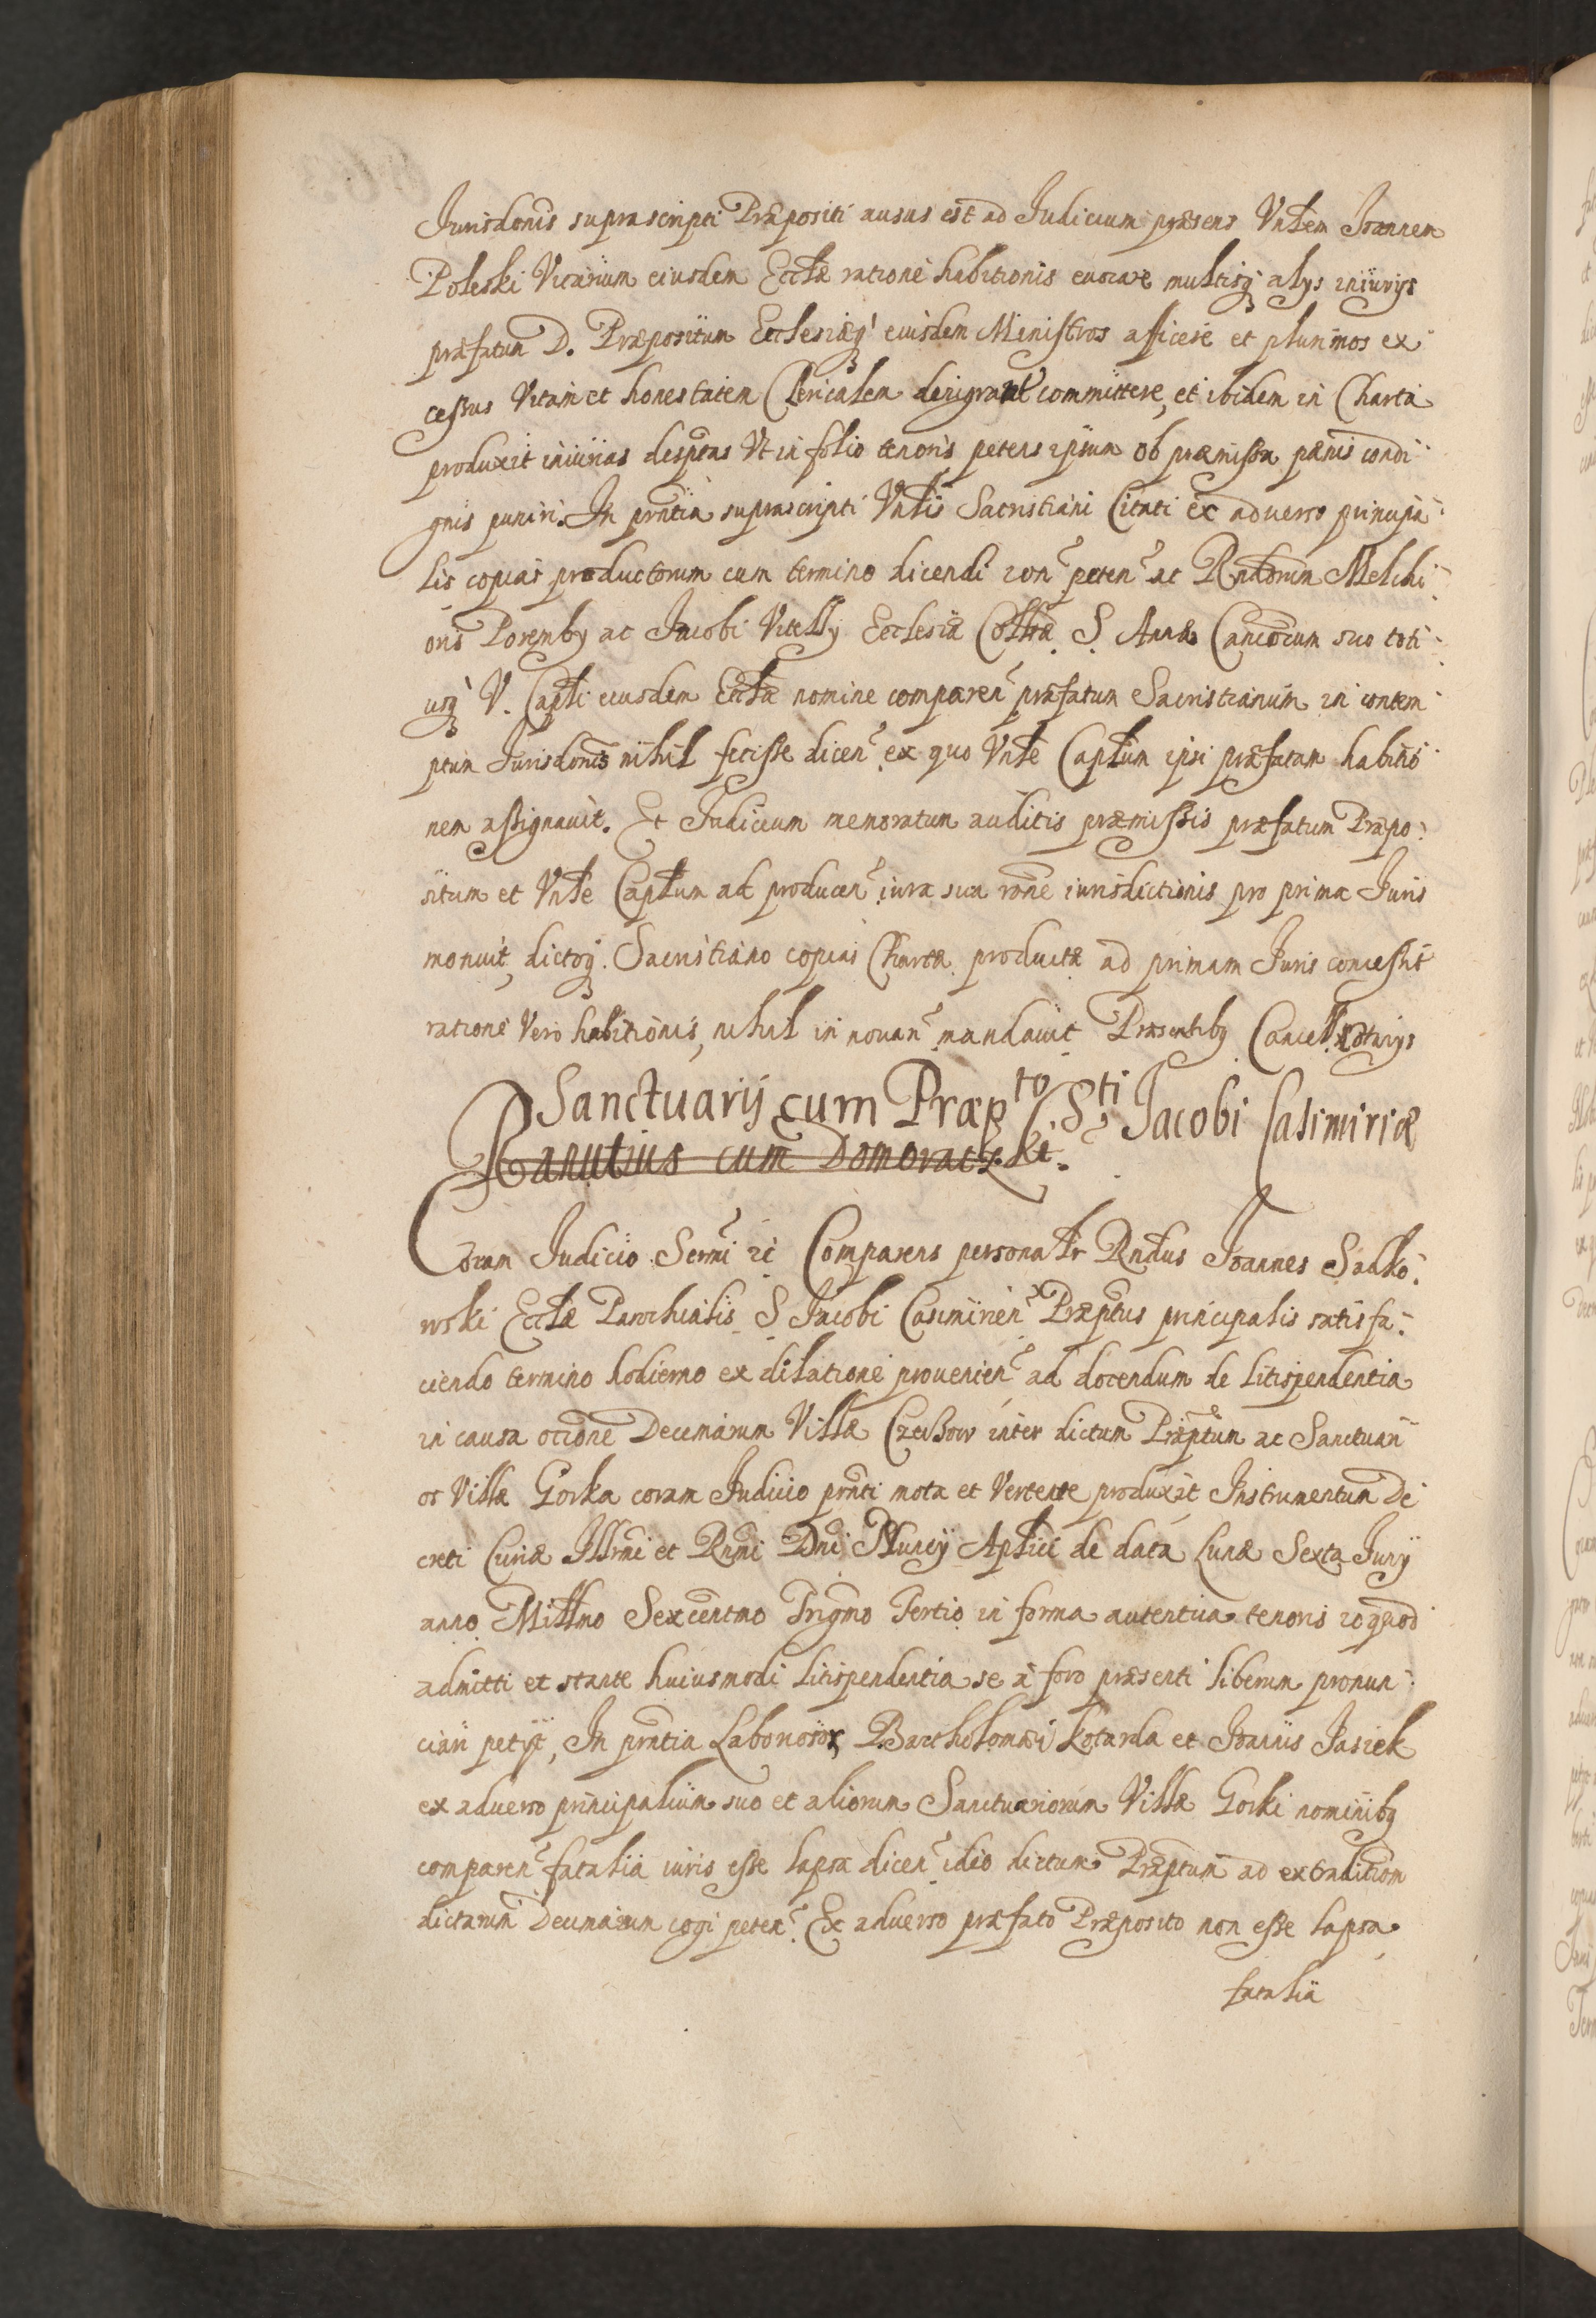 Jurisdonis suprascripti Præpositi ausus est ad Judicium præsens Vnlem Joannem
Poleski Vicarium eiusdem Ecclæ ratione habitionis euocare multisq; alys iniurys
præfatum D. Præpositum Ecclesiæq; eiusdem Ministros afficere et plurimos ex
cessus Vitam et honestatem Clericalem denigran committere, et ibidem in Charta
produxit iniurias desptas Vt in folio tenoris petens ipsum ob præmissa pænis condi
gnis puniri. In pntia suprascripti Vnlis Sacristiani Citati ex aduerso principa
lis copias productorum cum termino dicendi con peten ac Rndorum Melchi
oris Poremby ac Jacobi Vitelly Ecclesiæ Colltæ S. Annæ Cancorum suo toti
usq; V. Capli eiusdem Ecclæ nomine comparen præfatum Sacristianum in contem
ptum Jurisdonis nihil fecisse dicen ex quo Vnle Caplum ipsi præfatam habitio
nem assignauit. Et Judicium memoratum auditis præmissis præfatum Præpo
situm et Vnle Caplum ad producen iura sua rone iurisdictionis pro prima Juris
monuit, dictoq; Sacristiano copias Chartæ productæ ad primam Juris concessit
ratione Vero habitionis, nihil in nouan mandauit Præsentibq Cancell. Notarys
Sanctuarij cum Præpto Sti Jacobi Casimiriæ
Ranutius cum Domoraczki.
Coram Judicio Sermi ri Comparens personalr Rndus Joannes Sadko
wski Ecclæ Parochialis S Jacobi Casimirien Præptus principalis satisfa
ciendo termino hodierno ex dilatione prouenien ad docendum de litispendentia
in causa occione Decimarum Villæ Czeßow inter dictum Præptum ac Sanctuari
os Villæ Gorka coram Judicio prnti mota et Vertente produxit Instrumentum De
creti Curiæ Illrmi et Rnmi Dni Nuncij Aplici de data Lunæ Sexta Juny
anno Millmo Sexcentmo Trigmo Tertio in forma autentica tenoris ro quod
admitti et stante huiusmodi litispendentia se a foro præsenti liberum pronun
ciari petyt, In prntia Laborior Bartholomæi Kotarda et Joannis Jasiek
ex aduerso principalium suo et aliorum Sanctuariorum Villæ Gorki nominibq
comparen fatalia iuris esse lapsa dicen ideo dictum Præptum ad extraditiom
dictarum Decimarum cogi peten. Ex aduerso præfato Præposito non esse lapsa
fatalia